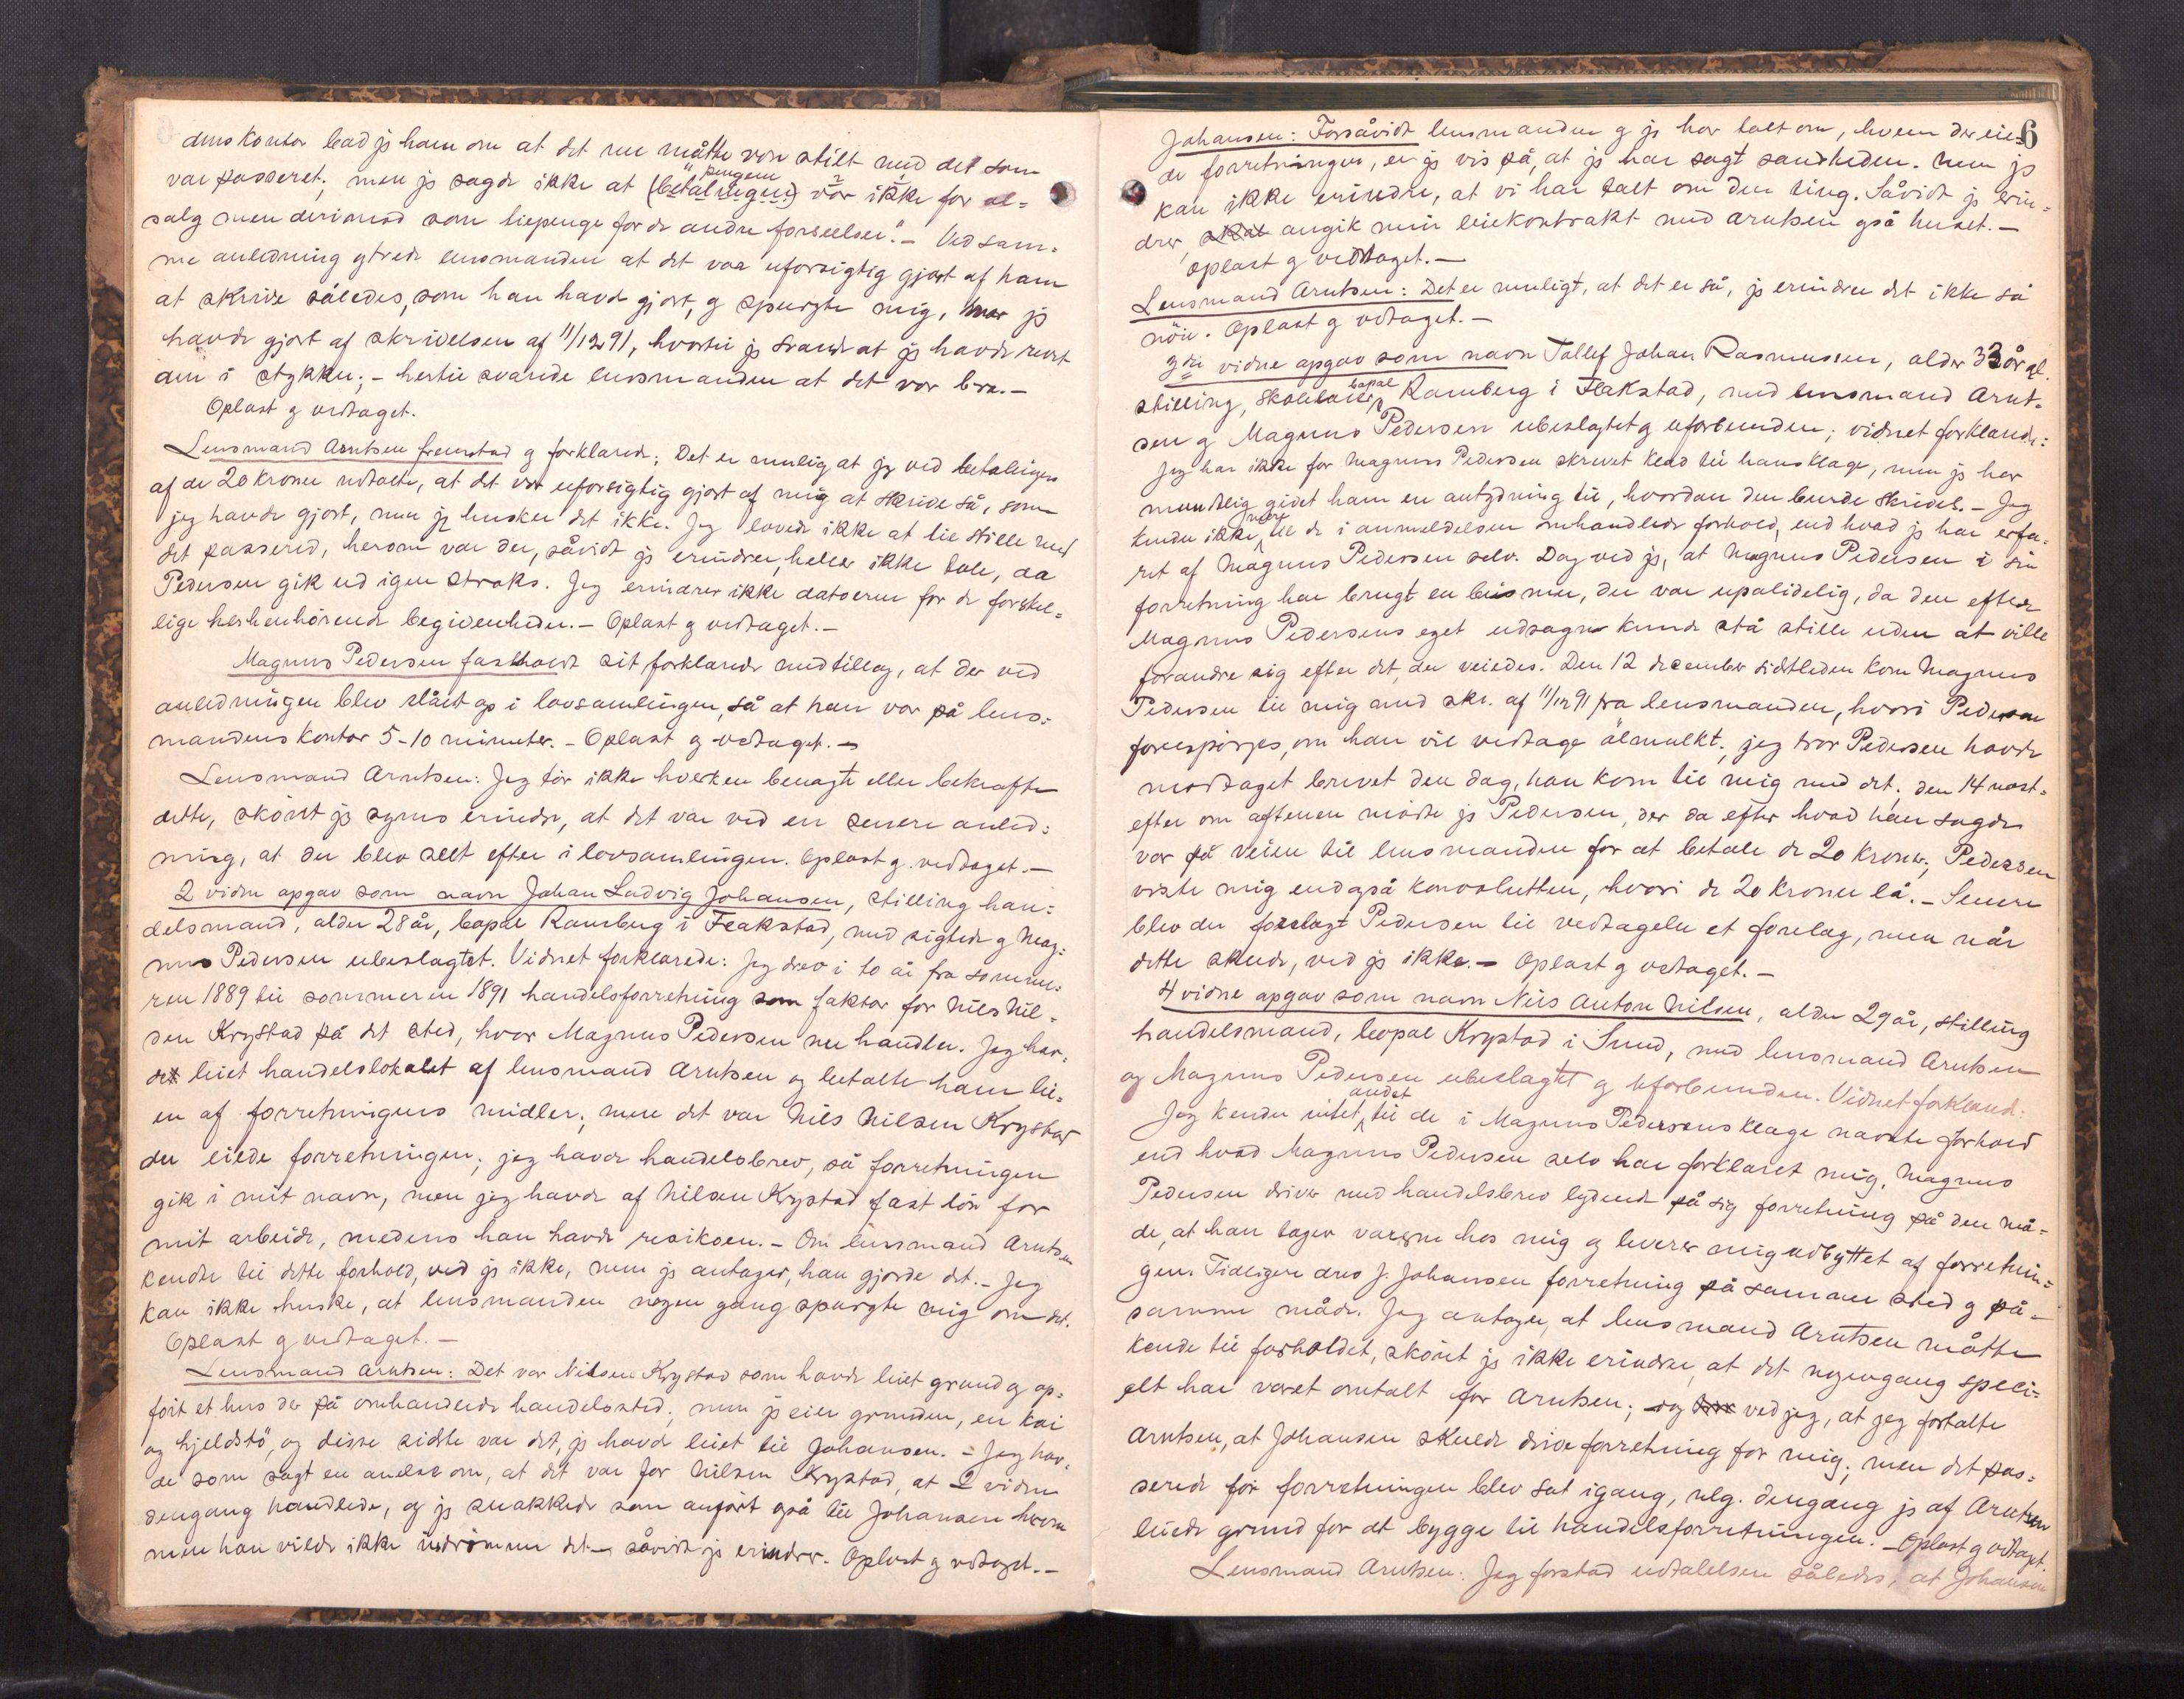 denskontor bad jg ham om at det nu måtte være stilt med det som
var passeret; men jg sagde ikke at (betalingen) "pengene var ikke for øl=
salg men derimod som tiepenge for de andre forseelser". – Ved sam=
me anledning ytrede lensmanden at det var uforsigtig gjort af ham
at skrive således, som han havde gjort, g spurgte mig, hvor jg
havde gjort af skrivelsen af 11/12 91, hvortil jg svarede at jg havde revet
den i stykker; – hertil svarede lensmanden at det var bra. –
Oplæst g vedtaget.
Lensmand Arntsen fremstod g forklarede: Det er mulig at jg ved betalingen
af de 20 kroner udtalte, at det var uforsigtig gjort af mig at skrive så, som
jeg havde gjort, men jg husker det ikke. Jeg lovede ikke at tie stille med
det passerede, herom var der, såvidt jg erindrer, heller ikke tale, da
Pedersen gik ud igen straks. Jeg erindrer ikke datoerne for de forskel=
lige herhenhørende begivenheder. – Oplæst g vedtaget. –
Magnus Pedersen fastholdt sit forklarede med tillæg, at der ved
anledningen blev slået op i lovsamlingen, så at han var på lens=
mandens kontor 5-10 minuter. – Oplæst g vedtaget. –
Lensmand Arntsen: Jeg tør ikke hverken benægte eller bekræfte
dette, skønt jg synes erindre, at det var ved en senere anled=
ning, at der blev seet efter i lovsamlingen. Oplæst g. vedtaget. –
2 vidne opgav som navn Johan Ludvig Johansen, stilling han=
delsmand, alder 28 år, bopæl Ramberg i Flakstad, med sigtede g Mag=
nus Pedersen ubeslægtet. Vidnet forklarede: Jeg drev i to år fra somme=
ren 1889 til sommeren 1891 handelsforretning som faktor for Nils Nil=
sen Krystad på det sted, hvor Magnus Pedersen nu handler. Jeg hav=
de leiet handelslokalet af lensmand Arntsen og betalte ham lei=
en af forretningens midler; men det var Nils Nilsen Krystad
der eiede forretningen; jeg havde handelsbrev, så forretningen
gik i mit navn, men jeg havde af Nilsen Krystad fast løn for
mit arbeide, medens han havde resikoen. – Om lensmand Arntsen
kendte til dette forhold, ved jg ikke, men jg antager, han gjorde det. – Jeg
kan ikke huske, at lensmanden nogen gang spurgte mig om det.
Oplæst g vedtaget. –
Lensmand Arntsen: Det var Nilsen Krystad som havde leiet grund og op=
ført et hus der på omhandlede handelssted; men jg eier grunden, en kai
og hjeldstø, og disse sidste var det, jg havde leiet til Johansen. – Jeg hav=
de som sagt en anelse om, at det var for Nilsen Krystad, at 2 vidne
dengang handlede, og jg snakkede som anført også til Johansen herom
men han vilde ikke indrømme det – såvidt jg erindrer. Oplæst g vedtaget. –
6
Johansen: Forsåvidt lensmanden g jg har talt om, hvem der eie=
de forretningen, er jg vis på, at jg har sagt sandheden. Men jg
kan ikke erindre, at vi har talt om den ting. Såvidt jg erin=
drer, angik min leiekontrakt med Arntsen også huset. –
Oplæst g vedtaget. –
Lensmand Arntsen: Det er muligt, at det er så, jg erindrer det ikke så
nøie. Oplæst g vedtaget. –
3die vidne opgav som navn Tollef Johan Rasmussen, alder 33 år gl.
stilling, skolelærer, bopæl Ramberg i Flakstad, med lensmand Arnt=
sen g Magnus Pedersen ubeslægtet g uforbunden; vidnet forklarede:
Jeg har ikke for Magnus Pedersen skrevet klad til hans klage, men jg har
mundtlig givet ham en antydning til, hvordan den burde skrives. – Jeg
kender ikke mere til de i anmeldelsen omhandlede forhold, end hvad jg har erfa=
ret af Magnus Pedersen selv. Dog ved jg, at Magnus Pedersen i sin
forretning har brugt en bismer, der var upålidelig, da den efter
Magnus Pedersens eget udsagn kunde stå stille uden at ville
forandre sig efter det, der veiedes. Den 12 december sidstleden kom Magnus
Pedersen til mig med skr. af 11/12 91 fra lensmanden, hvori Pedersen
forespørges, om han vil vedtage ølmulkt; jeg tror Pedersen havde
modtaget brevet den dag, han kom til mig med det; den 14 næst=
efter om aftenen mødte jg Pedersen, der da efter hvad han sagde
var på veien til lensmanden for at betale de 20 kroner; Pedersen
viste mig endogså konvolutten, hvori de 20 kroner lå. – Senere
blev der forelagt Pedersen til vedtagelse et forelæg, men når
dette skede, ved jg ikke. – Oplæst g vedtaget. –
4 vidne opgav som navn Nils Anton Nilsen, alder 29 år, stilling
handelsmand, bopæl Krystad i Sund, med lensmand Arntsen
og Magnus Pedersen ubeslægtet g uforbunden. Vidnet forklared:
Jeg kender intet andet til de i Magnus Pedersens klage nævnte forhold
end hvad Magnus Pedersen selv har forklaret mig. Magnus
Pedersen driver med handelsbrev lydende på sig forretning på den må=
de, at han tager varerne hos mig og leverer mig udbyttet af forretnin=
gen. Tidligere drev J. Johansen forretning på samme sted g på
samme måde. Jeg antager, at lensmand Arntsen måtte
kende til forholdet, skønt jg ikke erindrer, at det nogengang speci=
elt har været omtalt for Arntsen; ved jeg, at jeg fortalte
Arntsen, at Johansen skulde drive forretning for mig; men det pas=
serede før forretningen blev sat igang, nlg. dengang jg af Arntsen
leiede grund for at bygge til handelsforretningen. – Oplæst g vedtaget.
Lensmand Arntsen: Jeg forstod udtalelsen således, at Johansen